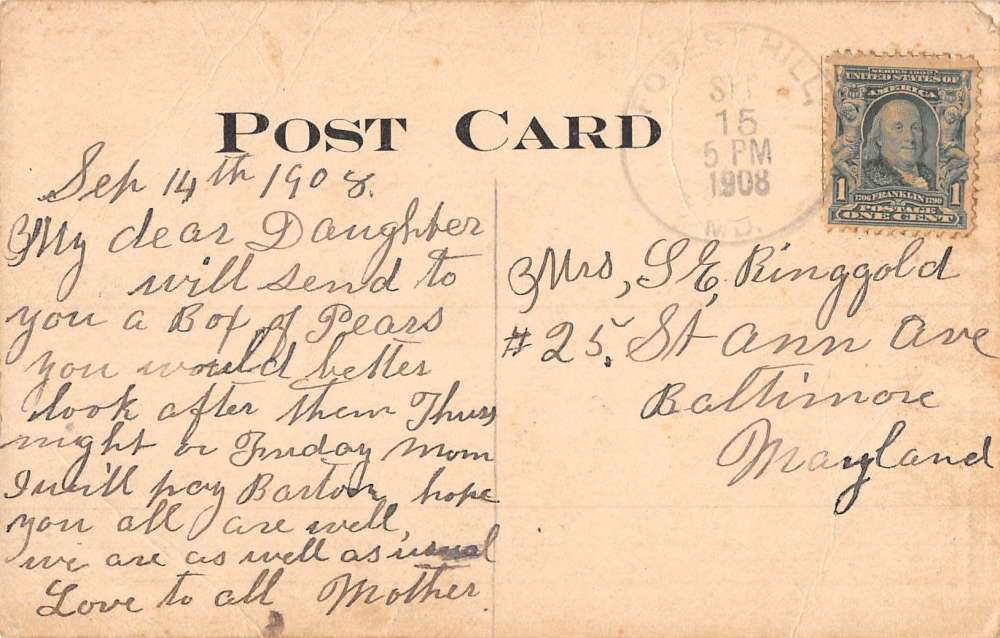 POST CARD
FOREST HILL,
SEP
15
5 PM
1908
MD.
SERIES 1902
UNITED STATES OF
AMERICA
1 1
1706 FRANKLIN 1790
POSTAGE
ONE CENT
Sep 14th 1908.
My dear Daughter
will send to
you a Box of Pears
you would better
look after them Thurs
night or Friday Morn
I will pay Barton hope
you all are well,
we are as well as usual
Love to all Mother.
Mrs, S, E, Ringgold
#25, St Ann Ave
Baltimore
Maryland